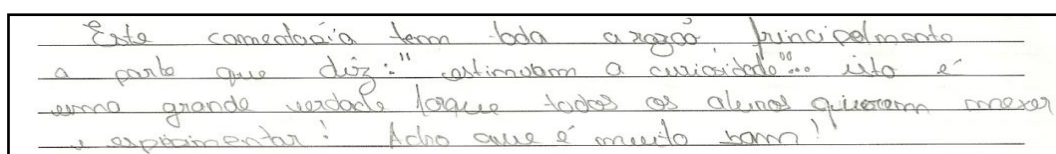 Este comentaria tem toda a razão principalmente
a parte que diz:" estimulam a curiosidade"... isto é
uma grande verdade porque todos os alunos querem mexer
e experimentar! Acho que é muito bom!